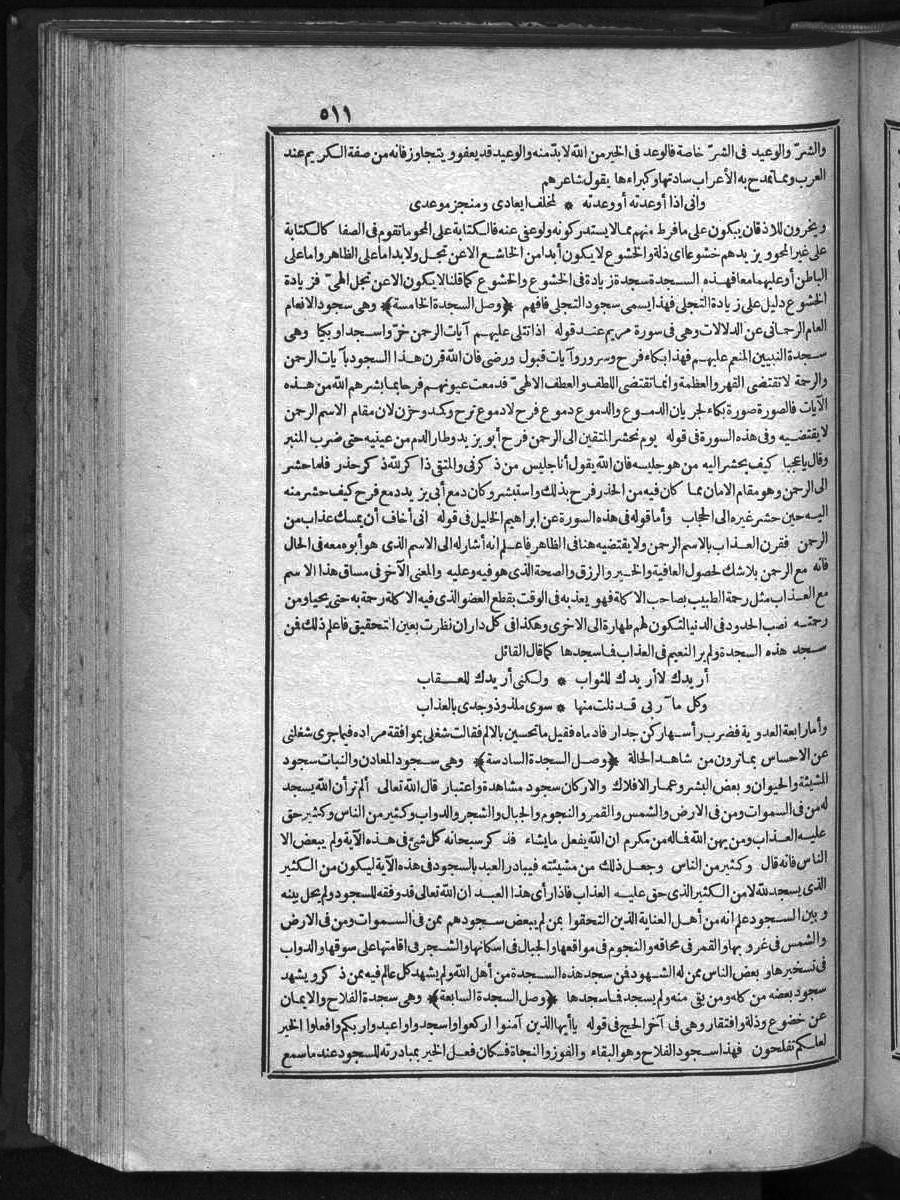 ٥١١
والشرّ والوعيد فى الشرّ خاصة فالوعد فى الخير من الله لا بدّ منه والوعيد قد يعفو ويتجاوز فانه من صفة الكريم عند
العرب ومما تمدح به الأعراب ساداتها وكبراءها يقول شاعرهم
وانى اذا أوعدته أو وعدته * لمخلف ايعادى ومنجز موعدى
ويخرون للاذقان يبكون على ما فرط منهم مما لا يستدركونه ولو عفى عنه فالكتابة على المحو ما تقوم فى الصفا كالكتابة
على غير المحو ويزيدهم خشوعا اى ذلة والخشوع لا يكون أبدا من الخاشع الا عن تجل ولا بد اما على الظاهر واما على
الباطن أو عليهما معا فهذه السجدة سجدة زيادة فى الخشوع والخشوع كما قلنا لا يكون الا عن تجل الهىّ فزيادة
الخشوع دليل على زيادة التجلى فهذا يسمى سجود التجلى فافهم ﴿وصل السجدة الخامسة﴾ وهى سجود الانعام
العام الرحمانى عن الدلالات وهى فى سورة مريم عند قوله اذا تتلى عليهم آيات الرحمن خرّوا سجدا وبكيا وهى
سجدة النبيين المنعم عليهم فهذا بكاء فرح وسرور وآيات قبول ورضى فان الله قرن هذا السجود بآيات الرحمن
والرحمة لا تقتضى القهر والعظمة وانما تقتضى اللطف والعطف الالهىّ فدمعت عيونهم فرحا بما بشرهم الله من هذه
الآيات فالصورة صورة بكاء لجريان الدموع والدموع دموع فرح لا دموع ترح وكمد وحزن لان مقام الاسم الرحمن
لا يقتضيه وفى هذه السورة فى قوله يوم نحشر المتقين الى الرحمن فرح أبو يزيد وطار الدم من عينيه حتى ضرب المنبر
وقال يا عجبا كيف يحشر اليه من هو جليسه فان الله يقول أنا جليس من ذكرنى والمتقى ذاكر لله ذكر حذر فلما حشر
الى الرحمن وهو مقام الامان مما كان فيه من الحذر فرح بذلك واستبشر وكان دمع أبى يزيد دمع فرح كيف حشر منه
اليه حين حشر غيره الى الحجاب وأما قوله فى هذه السورة عن ابراهيم الخليل فى قوله انى أخاف أن يمسك عذاب من
الرحمن فقرن العذاب بالاسم الرحمن ولا يقتضيه هنا فى الظاهر فاعلم انه أشار له الى الاسم الذى هو أبوه معه فى الحال
فانه مع الرحمن بلا شك لحصول العافية والخير والرزق والصحة الذى هو فيه وعليه والمعنى الآخر فى مساق هذا الاسم
مع العذاب مثل رحمة الطبيب بصاحب الاكلة فهو يعذبه فى الوقت بقطع العضو الذى فيه الاكلة رحمة به حتى يحيا ومن
رحمته نصب الحدود فى الدنيا لتكون لهم طهارة الى الاخرى وهكذا فى كل دار ان نظرت بعين التحقيق فاعلم ذلك فمن
سجد هذه السجدة ولم ير النعيم فى العذاب فما سجدها كما قال القائل
أريدك لا أريدك للثواب * ولكنى أريدك للعقاب
وكل مآربى قد نلت منها * سوى ملذوذ وجدى بالعذاب
وأما رابعة العدوية فضرب رأسها ركن جدار فادماه فقيل ما تحسين بالالم فقالت شغلى بموافقة مراده فيما جرى شغلنى
عن الاحساس بما ترون من شاهد الحالة ﴿وصل السجدة السادسة﴾ وهى سجود المعادن والنبات سجود
المشيئة والحيوان وبعض البشر وعمار الافلاك والاركان سجود مشاهدة واعتبار قال الله تعالى ألم تر أن الله يسجد
له من فى السموات ومن فى الارض والشمس والقمر والنجوم والجبال والشجر والدواب وكثير من الناس وكثير حق
عليه العذاب ومن يهن الله فما له من مكرم ان الله يفعل ما يشاء فذكر سبحانه كل شئ فى هذه الآية ولم يبعض الا
الناس فانه قال وكثير من الناس وجعل ذلك من مشيئته فيبادر العبد بالسجود فى هذه الآية ليكون من الكثير
الذى يسجد لله لا من الكثير الذى حق عليه العذاب فاذا رأى هذا العبد ان الله تعالى قد وفقه للسجود ولم يحل بينه
وبين السجود علم انه من أهل العناية الذين التحقوا بمن لم يبعض سجودهم ممن فى السموات ومن فى الارض
والشمس فى غروبها والقمر فى محاقه والنجوم فى مواقعها والجبال فى اسكانها والشجر فى اقامتها على سوقها والدواب
فى تسخيرها وبعض الناس ممن له الشهود فمن سجد هذه السجدة من أهل الله ولم يشهد كل عالم فيه ممن ذكر ويشهد
سجود بعضه من كله ومن بقى منه ولم يسجد فما سجدها ﴿وصل السجدة السابعة﴾ وهى سجدة الفلاح والايمان
عن خضوع وذلة وافتقار وهى فى آخر الحج فى قوله يا أيها الذين آمنوا اركعوا واسجدوا واعبدوا ربكم وافعلوا الخير
لعلكم تفلحون فهذا سجود الفلاح وهو البقاء والفوز والنجاة فكان فعل الخير بمبادرته للسجود عند ما سمع